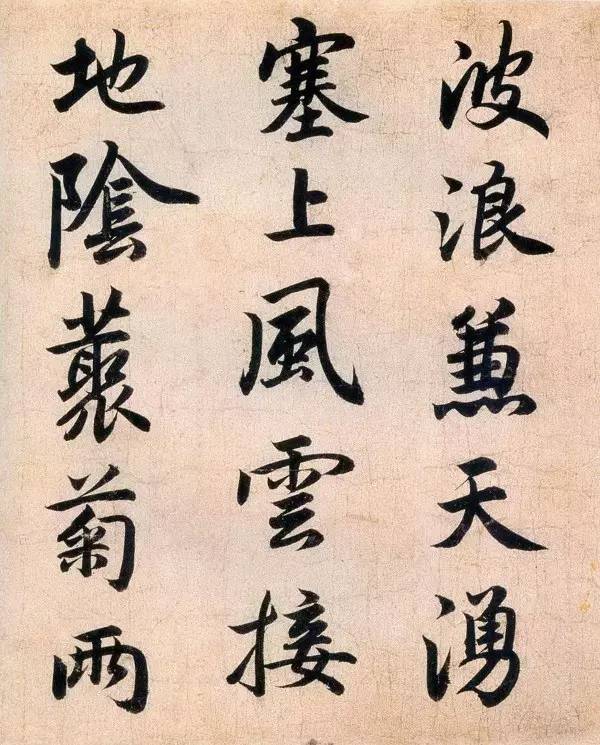 波浪兼天湧
塞上風雲接
地陰蕞菊兩